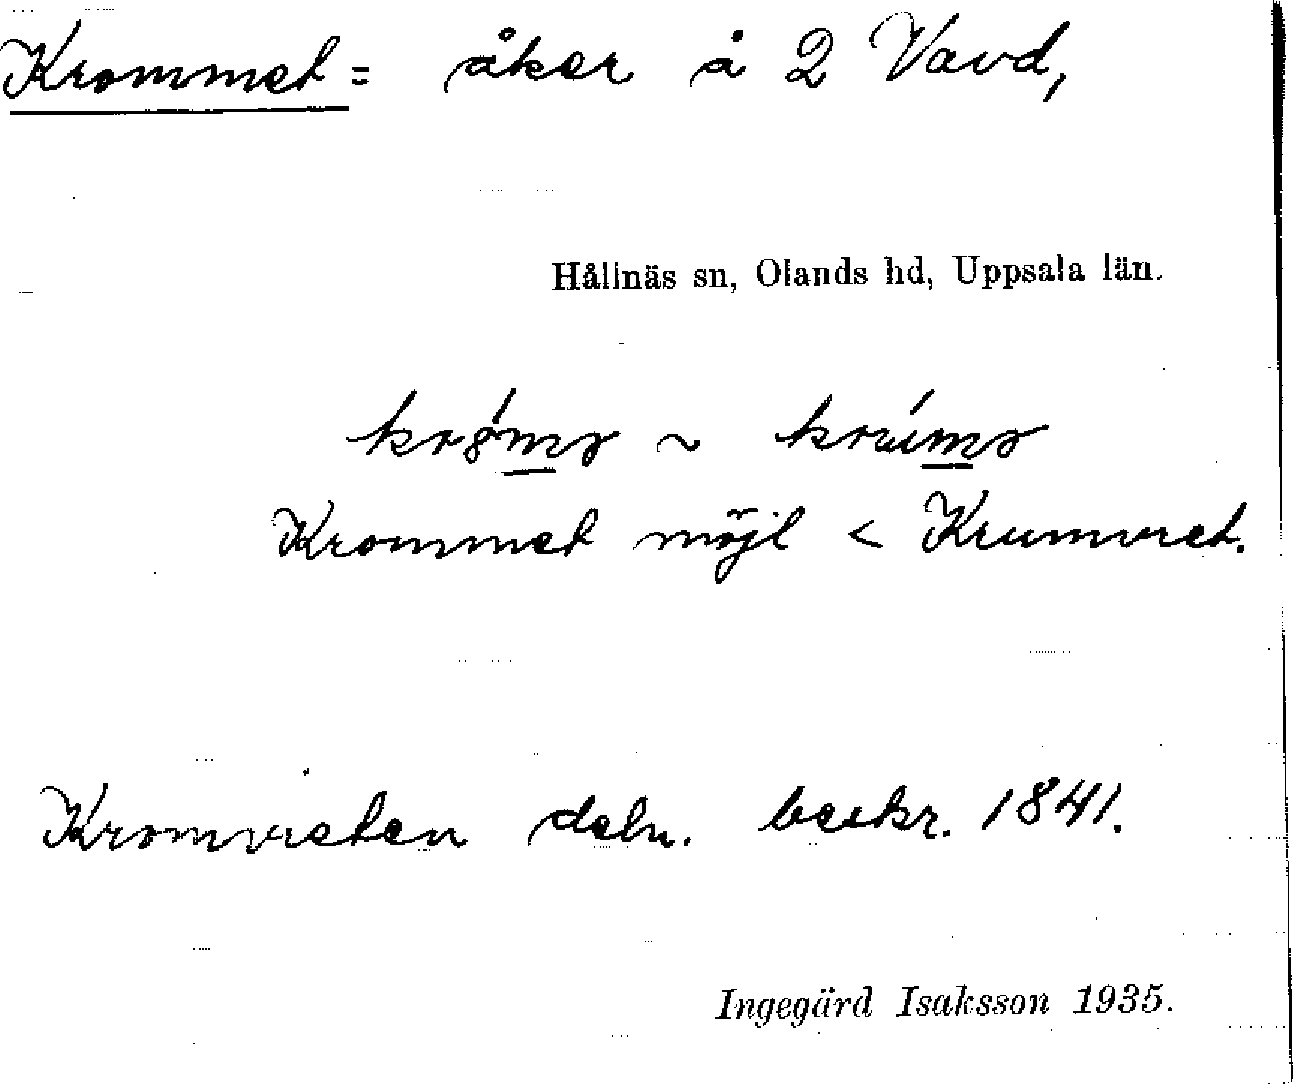 Krommet = åker å 2 Vavd,
Hållnäs sn, Olands hd, Uppsala län.
~
Krommet möjl < Krumvret.
Kromvreten deln. beskr. 1841.
Ingegärd Isaksson 1935.